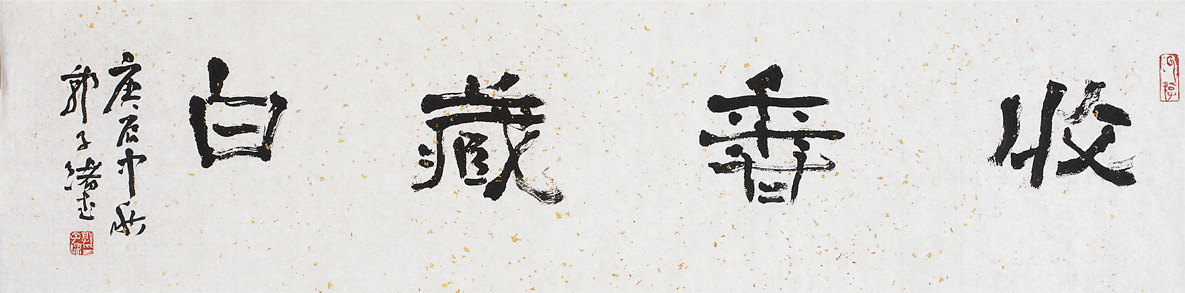 收香藏白
庚辰中秋
郭子绪书